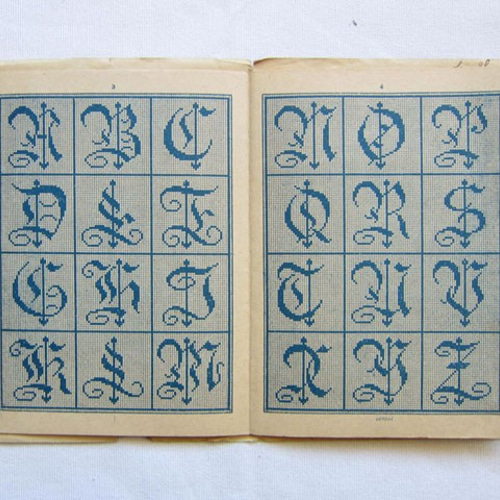 3
A B C
D E F
G H I
K L M
4
N O P
Q R S
T U V
X Y Z